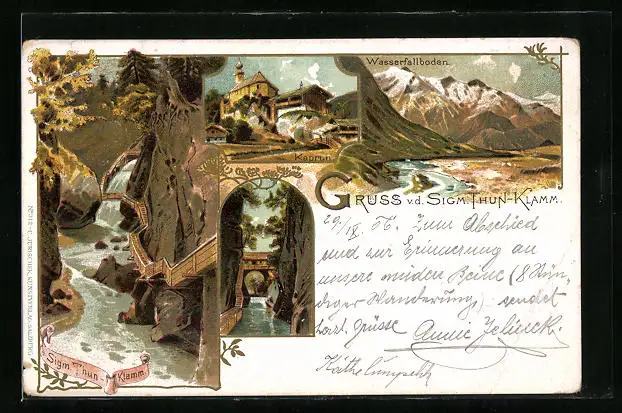 Wasserfallboden.
Kaprun.
GRUSS v.d. SIGM. THUN-KLAMM.
29/IX. 06. Zum Abschied
und zur Erinnerung an
unsere müden Beine (8 Stün-
diger Wanderung,) sendet
herzl. Grüsse Annie Jelinek.
Käthe
Sigm. Thun-Klamm.